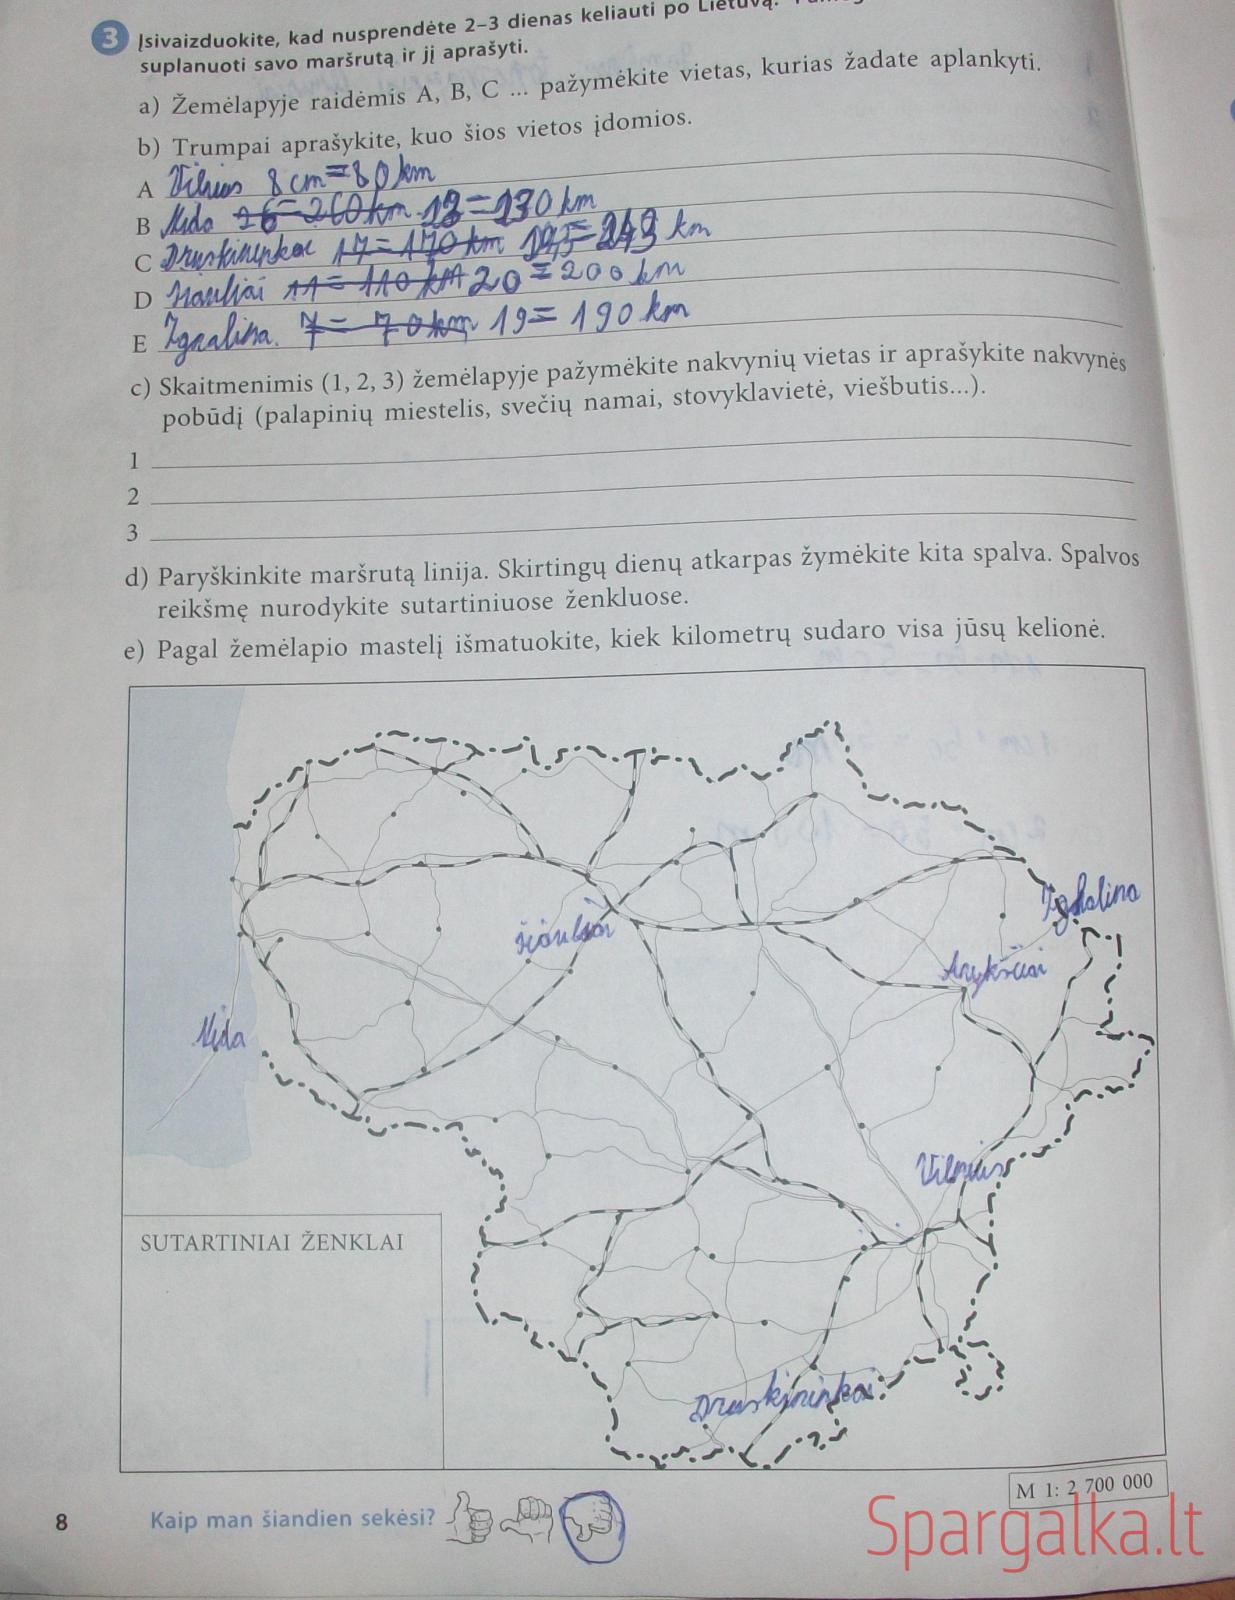 3 Įsivaizduokite, kad nusprendėte 2–3 dienas keliauti po Lietuvą.
suplanuoti savo maršrutą ir jį aprašyti.
a) Žemėlapyje raidėmis A, B, C ... pažymėkite vietas, kurias žadate aplankyti.
b) Trumpai aprašykite, kuo šios vietos įdomios.
A Vilnius 8 cm = 80 km
B Nida 26 = 260 km 13 = 130 km
C Druskininkai 17 = 170 km km
D Šiauliai 11 = 110 km 20 = 200 km
E Ignalina. 7 = 70 km 19 = 190 km
c) Skaitmenimis (1, 2, 3) žemėlapyje pažymėkite nakvynių vietas ir aprašykite nakvynės
pobūdį (palapinių miestelis, svečių namai, stovyklavietė, viešbutis...).
1
2
3
d) Paryškinkite maršrutą linija. Skirtingų dienų atkarpas žymėkite kita spalva. Spalvos
reikšmę nurodykite sutartiniuose ženkluose.
e) Pagal žemėlapio mastelį išmatuokite, kiek kilometrų sudaro visa jūsų kelionė.
Ignalina
Šiauliai
Anykščiai
Nida
Vilnius
SUTARTINIAI ŽENKLAI
Druskininkai
M 1: 2 700 000
8 Kaip man šiandien sekėsi?
Spargalka.lt